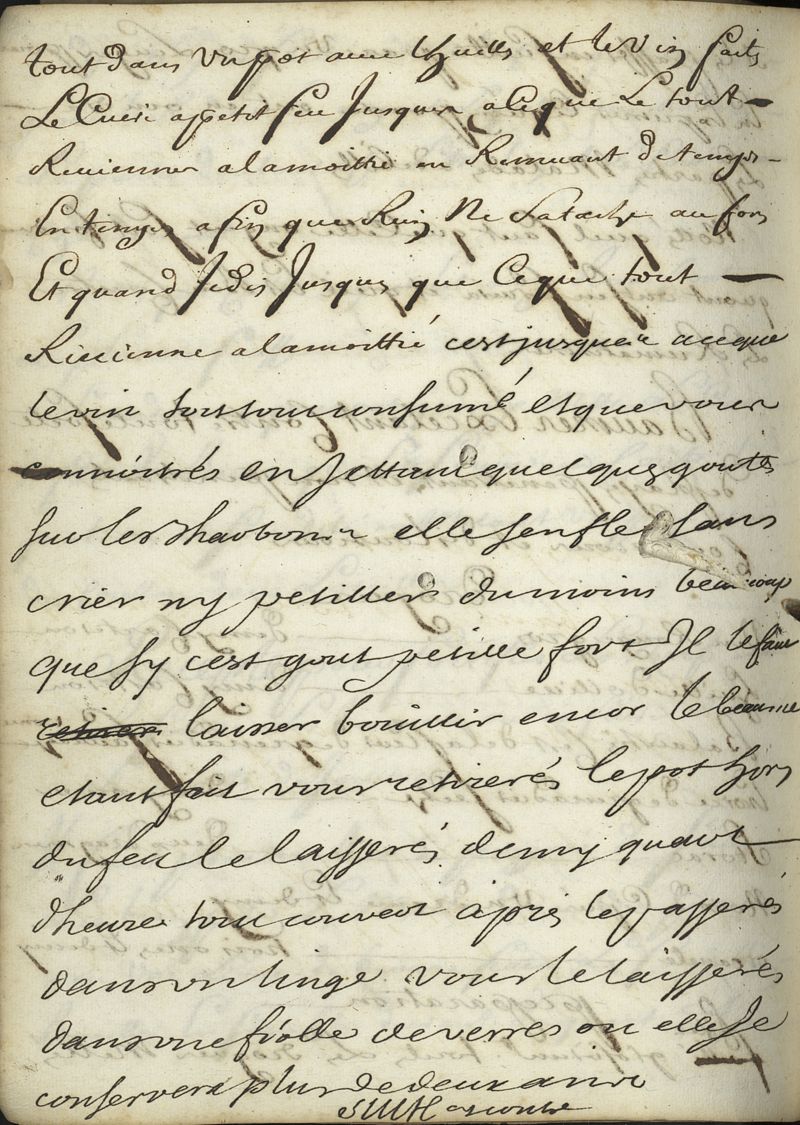 tout dans un pot avec lhuille et le vin faites
Le Cuire apetit feu Jusques aceque Le tout
Revienne alamoittié en Remuant detemps
En temps afin que Rien Ne satache au fon
Et quand Jedis Jusques que Ceque tout
Revienne alamoittié cest jusques aceque
levin soit tout consumé et que vous
connoitrés en Jettant quelques goutes
sur les charbons elle senfle sans
crier ny petiller du moins beaucoup
que sy cest gout petille fort Il le faut
retirer laisser bouillir encor le beaume
etant fait vous retirerés le pot hors
du feu le laisserés demy quart
dheure tout couvert aprés le passerés
dans un linge vous le laisserés
dans une fiolle de verre ou elle se
conservera plus de deux ans